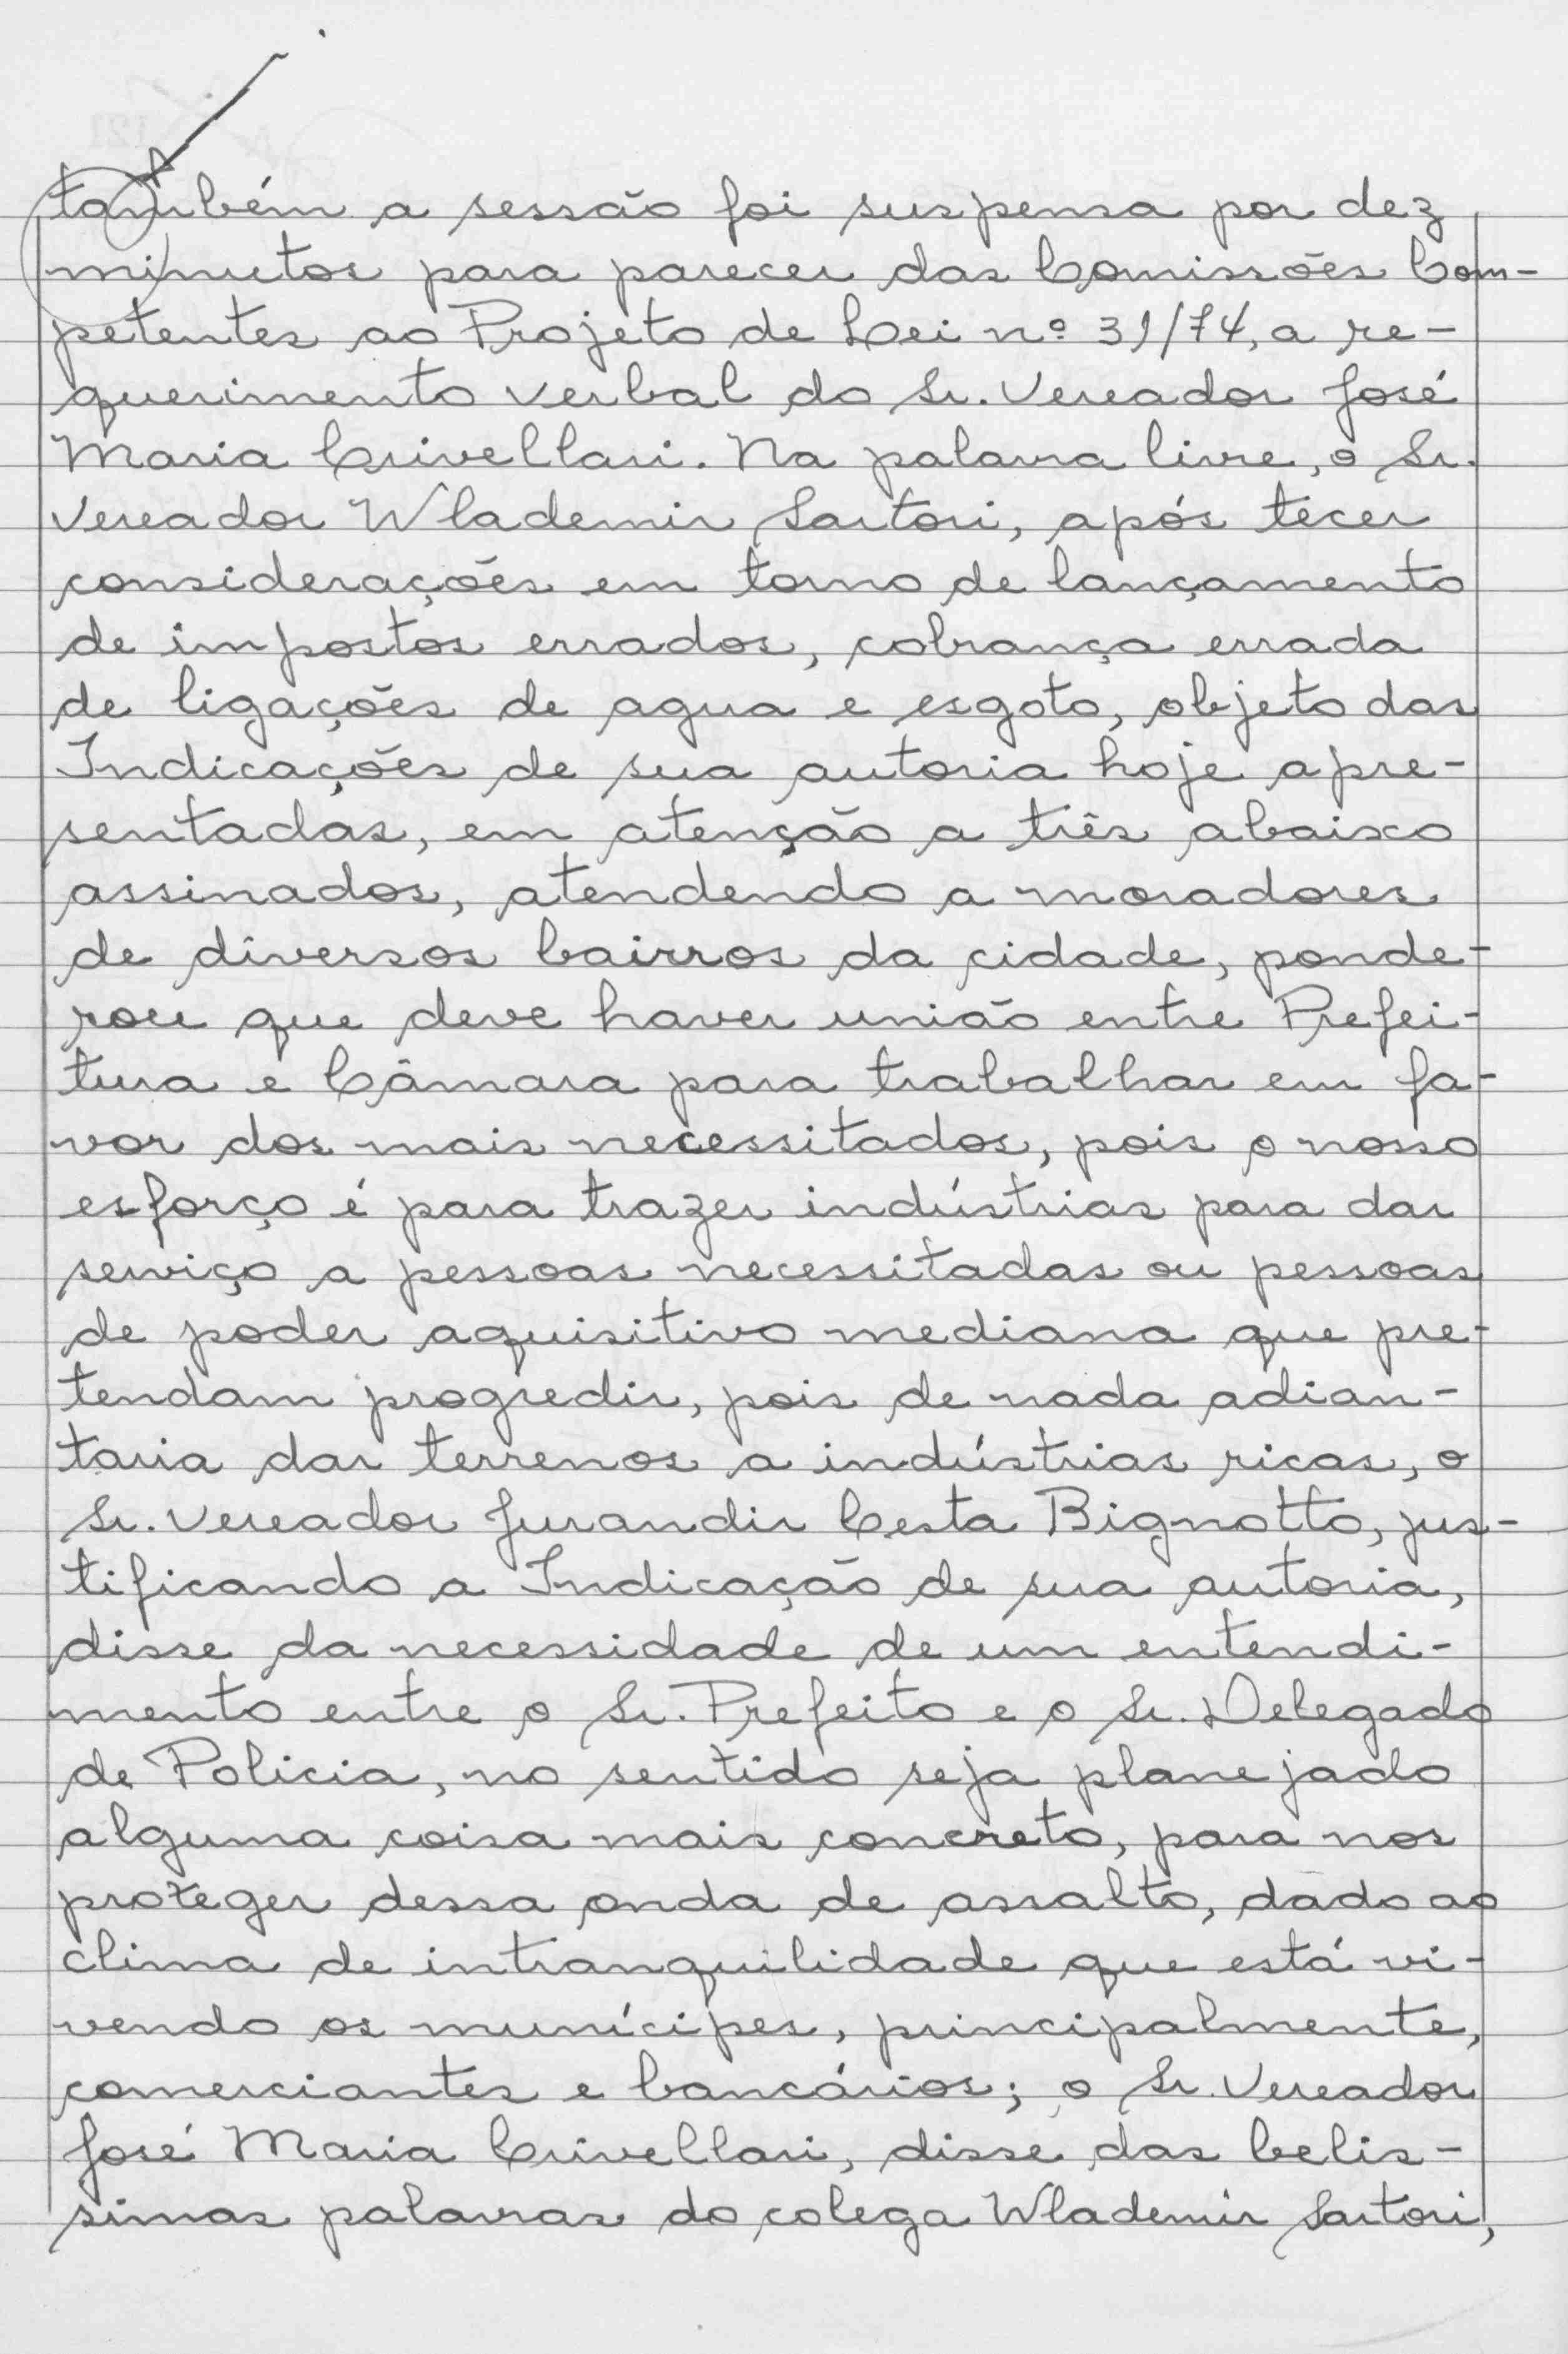 também a sessão foi suspensa por dez
minutos para parecer das Comissões Com-
petentes ao Projeto de Lei nº 31/74, a re-
querimento verbal do Sr. Vereador José
Maria Crivellari. Na palavra livre, o Sr.
Vereador Wlademir Sartori, após tecer
considerações em torno de lançamento
de impostos errados, cobrança errada
de ligações de agua e esgoto, objeto das
Indicações de sua autoria hoje apre-
sentadas, em atenção a três abaixo
assinados, atendendo a moradores
de diversos bairros da cidade, ponde-
rou que deve haver união entre Prefei-
tura e Câmara para trabalhar em fa-
vor dos mais necessitados, pois o nosso
esforço é para trazer indústrias para dar
serviço a pessoas necessitadas ou pessoas
de poder aquisitivo mediana que pre-
tendam progredir, pois de nada adian-
taria dar terrenos a indústrias ricas, o
Sr. Vereador Jurandir Cesta Bignotto, jus-
tificando a Indicação de sua autoria,
disse da necessidade de um entendi-
mento entre o Sr. Prefeito e o Sr. Delegado
de Policia, no sentido seja planejado
alguma coisa mais concreto, para nos
proteger dessa onda de assalto, dado ao
clima de intranquilidade que está vi-
vendo os munícipes, principalmente,
comerciantes e bancários; o Sr. Vereador
José Maria Crivellari, disse das belis-
simas palavras do colega Wlademir Sartori,